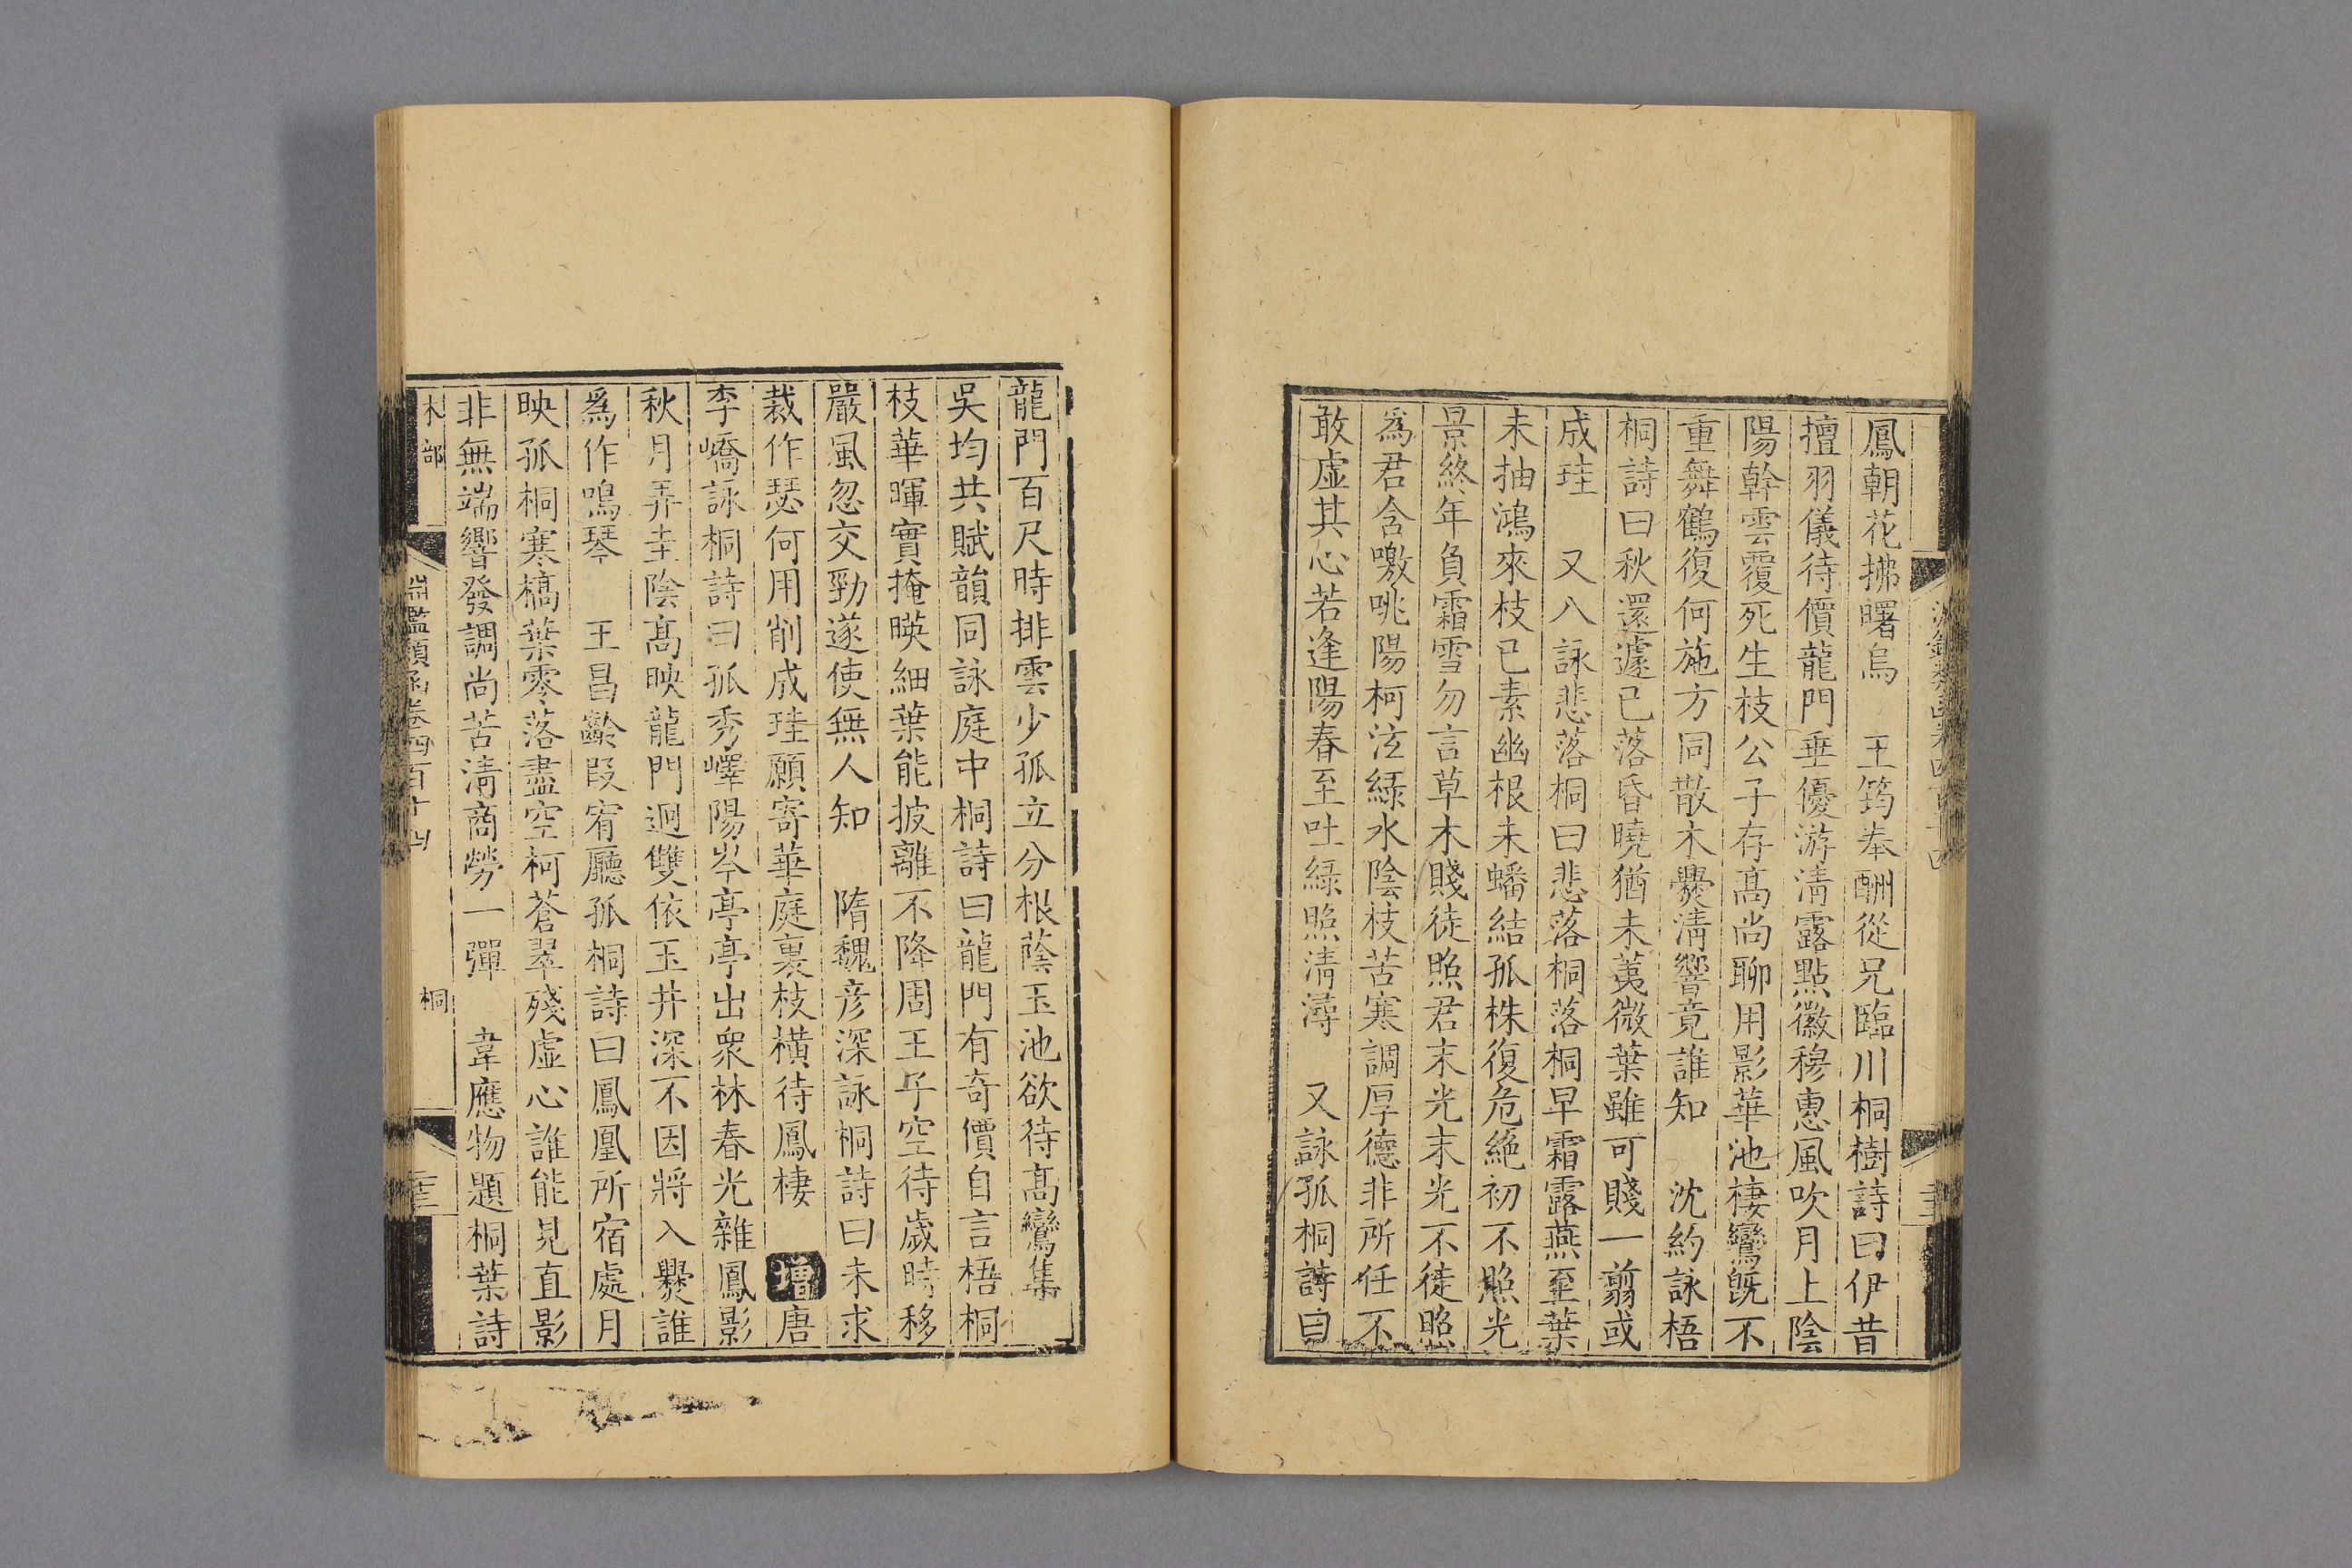 鳳朝花拂曙烏　王筠奉酬從兄臨川桐樹詩曰伊昔
擅羽儀待價龍門垂優游清露點徽穆惠風吹月上陰
陽幹雲覆死生枝公子存高尚聊用影華池棲鸞旣不
重舞鶴復何施方同散木爨清響竟誰知　沈約詠梧
桐詩曰秋還遽已落昏曉猶未荑微葉雖可賤一翦或
成珪　又八詠悲落桐曰悲落桐落桐早霜露燕至葉
未抽鴻來枝已素幽根未蟠結孤株復危絕初不照光
景終年負霜雪勿言草木賤徒照君末光末光不徒照
為君含噭咷陽柯泫綠水陰枝苦寒調厚德非所任不
敢虛其心若逢陽春至吐綠照清潯　又詠孤桐詩曰
龍門百尺時排雲少孤立分根蔭玉池欲待高鸞集
吳均共賦韻同詠庭中桐詩曰龍門有奇價自言梧桐
枝華暉實掩暎細葉能披離不降周王子空待歲時移
嚴風忽交勁遂使無人知　隋魏彥深詠桐詩曰未求
裁作瑟何用削成珪願寄華庭裏枝橫待鳳棲　增唐
李嶠詠桐詩曰孤秀嶧陽岑亭亭出衆林春光雜鳳影
秋月弄圭陰高映龍門迥雙依玉井深不因將入爨誰
為作鳴琴　王昌齡段宥廳孤桐詩曰鳳凰所宿處月
映孤桐寒槁葉零落盡空柯蒼翠殘虛心誰能見直影
非無端響發調尚苦清商勞一彈　韋應物題桐葉詩
木部
淵鑑類函卷四百十四
桐